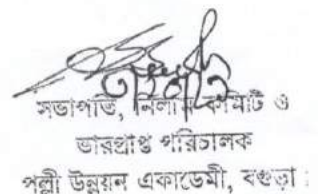 সভাপতি, নিলাম কমিটি ও
ভারপ্রাপ্ত পরিচালক
পল্লী উন্নয়ন একাডেমী, বগুড়া।